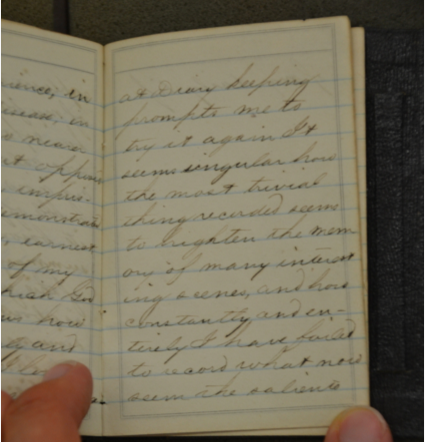 rience, in
disease, in
o near
at oppor
impris-
emonstrate
, earnest
of my
which God
us how
and
at Diary keeping
prompts me to
try it again It
seems singular how
the most trivial
thing recorded seem
to brighten the mem
ory of many interest
ing scenes, and how
constantly and en-
tirely I have failed
to record what now
seem the salient